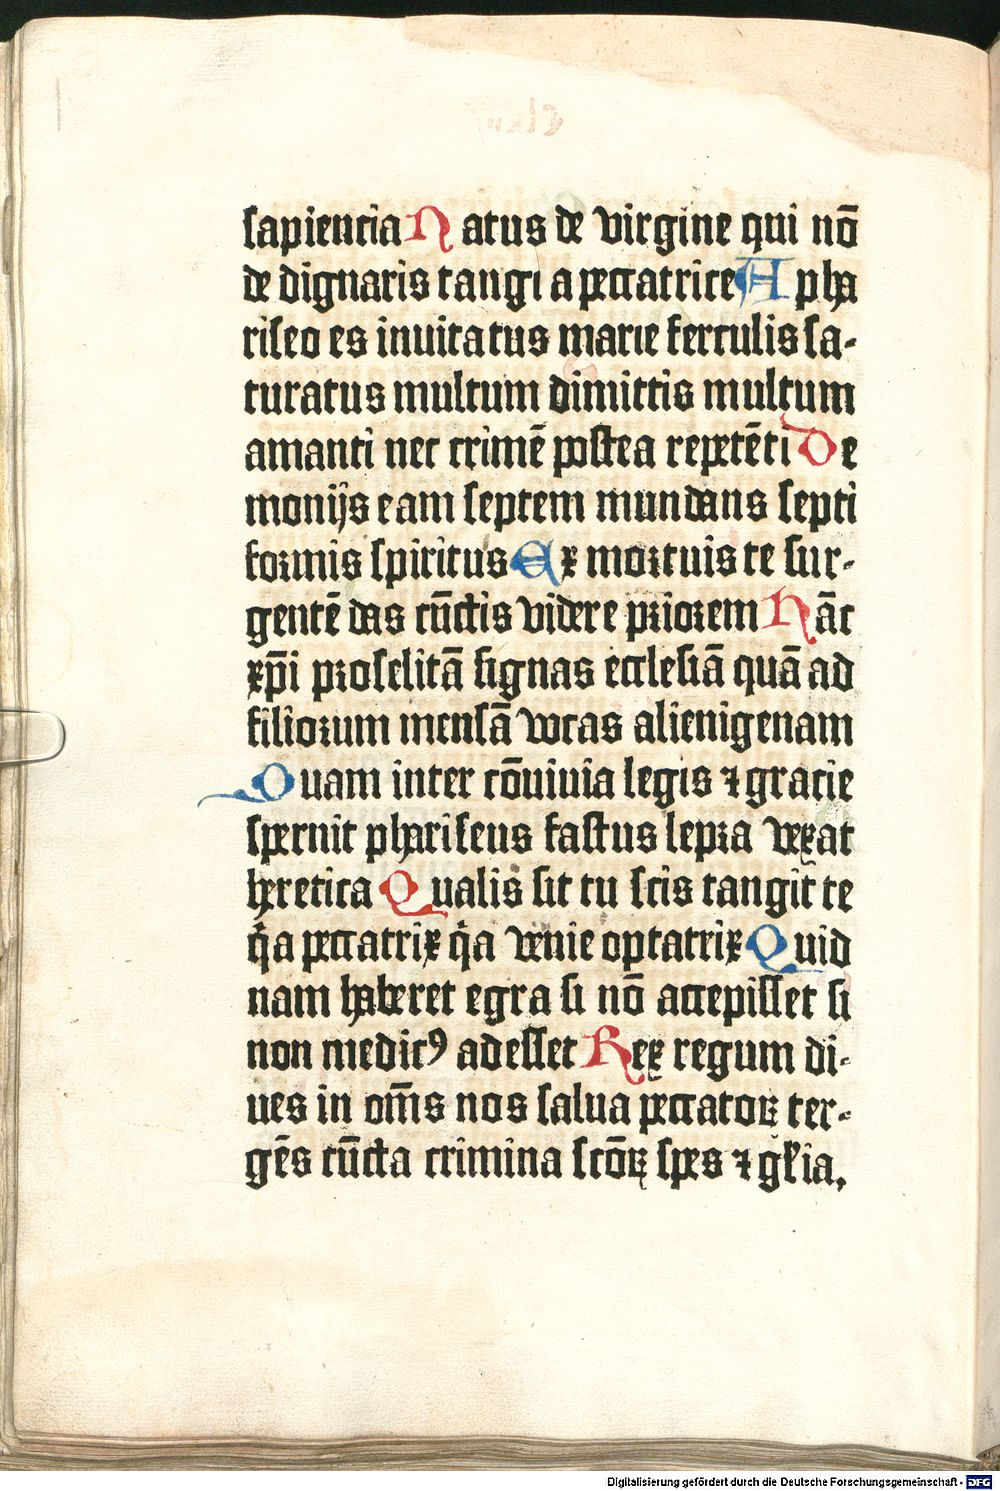 sapiencia Natus de virgine qui nō
de dignaris tangi a peccatrice A pha
riseo es inuitatus marie ferculis sa-
turatus multum dimittis multum
amanti nec crimē postea repetēti De
monijs eam septem mundans septi
formis spiritus Ex mortuis te sur-
gentē das cūctis videre priorem Hāc
xp̄i proselitā signas ecclesiā quā ad
filiorum mensā vocas alienigenam
Quam inter cōuiuia legis ⁊ gracie
spernit phariseus fastus lepra vexat
heretica Qualis sit tu scis tangit te
q̇a peccatrix q̇a venie optatrix Quid
nam haberet egra si nō accepisset si
non medicꝰ adesset Rex regum di-
ues in om̄s nos salua peccatoꝝ ter-
gēs cūcta crimina scōꝝ spes ⁊ gl̄ia.
Digitalisierung gefördert durch die Deutsche Forschungsgemeinschaft - DFG